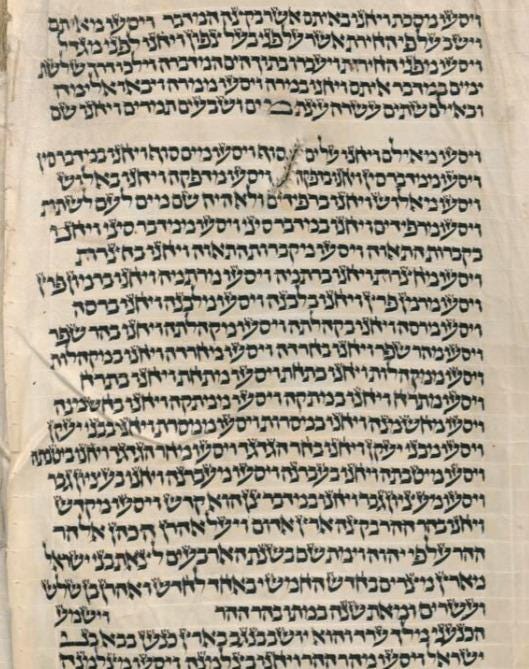 ויסעו מסכת ויחנו באתם אשר בקצה המדבר ויסעו מאתם
וישב על פי החירת אשר על פני בעל צפון ויחנו לפני מגדל
ויסעו מפני החירת ויעברו בתוך הים המדברה וילכו דרך שלשת
ימים במדבר אתם ויחנו במרה ויסעו ממרה ויבאו אילמה
ובאילם שתים עשרה עינת מים ושבעים תמרים ויחנו שם
ויסעו מאילם ויחנו על ים סוף ויסעו מים סוף ויחנו במדבר סין
ויסעו ממדבר סין ויחנו בדפקה ויסעו מדפקה ויחנו באלוש
ויסעו מאלוש ויחנו ברפידם ולא היה שם מים לעם לשתות
ויסעו מרפידם ויחנו במדבר סיני ויסעו ממדבר סיני ויחנו
בקברת התאוה ויסעו מקברת התאוה ויחנו בחצרת
ויסעו מחצרת ויחנו ברתמה ויסעו מרתמה ויחנו ברמן פרץ
ויסעו מרמן פרץ ויחנו בלבנה ויסעו מלבנה ויחנו ברסה
ויסעו מרסה ויחנו בקהלתה ויסעו מקהלתה ויחנו בהר שפר
ויסעו מהר שפר ויחנו בחרדה ויסעו מחרדה ויחנו במקהלות
ויסעו ממקהלות ויחנו בתחת ויסעו מתחת ויחנו בתרח
ויסעו מתרח ויחנו במתקה ויסעו ממתקה ויחנו בחשמנה
ויסעו מחשמנה ויחנו במסרות ויסעו ממסרות ויחנו בבני יעקן
ויסעו מבני יעקן ויחנו בחר הגדגד ויסעו מחר הגדגד ויחנו ביטבתה
ויסעו מיטבתה ויחנו בעברנה ויסעו מעברנה ויחנו בעצין גבר
ויסעו מעצין גבר ויחנו במדבר צן הוא קדש ויסעו מקדש
ויחנו בהר ההר בקצה ארץ אדום ויעל אהרן הכהן אל הר
ההר על פי יהוה וימת שם בשנת הארבעים לצאת בני ישראל
מארץ מצרים בחדש החמישי באחד לחדש ואהרן בן שלש
ועשרים ומאת שנה במתו בהר ההר וישמע
הכנעני מלך ערד והוא ישב בנגב בארץ כנען בבא בני
ישראל ויסעו מהר ההר ויחנו בצלמנה ויסעו מצלמנה